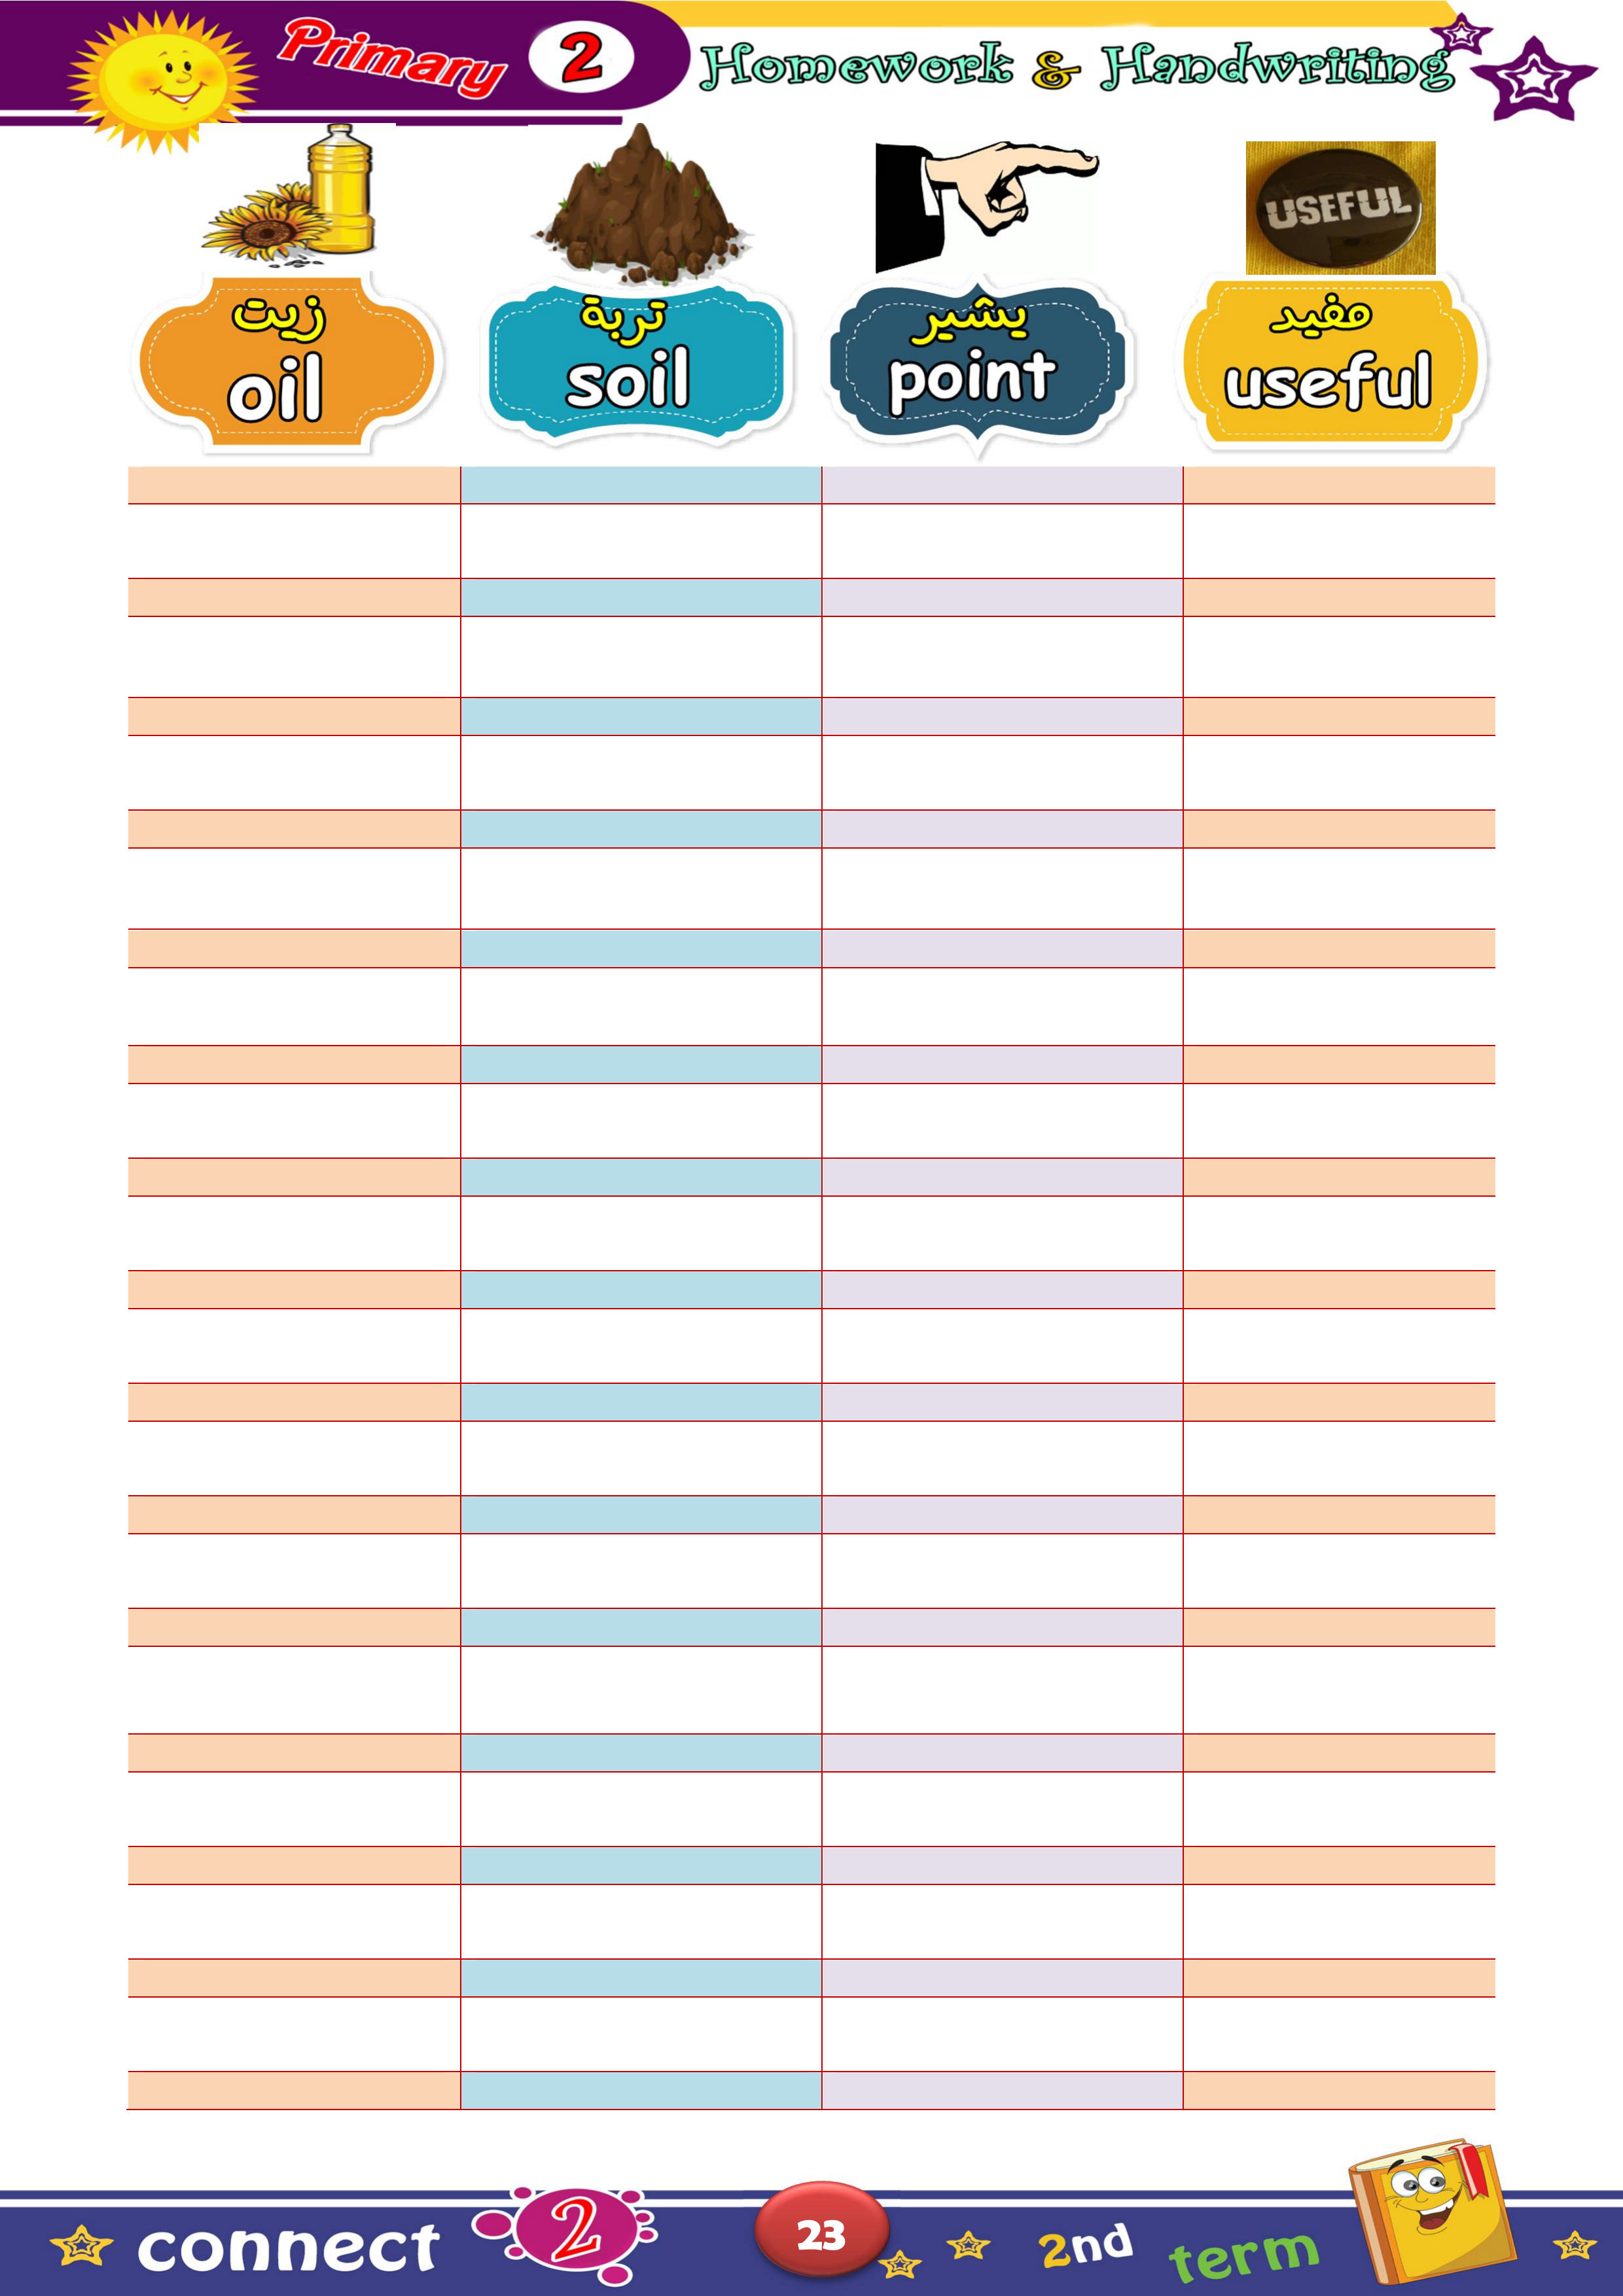 Primary 2 Homework & Handwriting
USEFUL
زيت
oil
تربة
soil
يشير
point
مفيد
useful
connect 2 23 2nd term